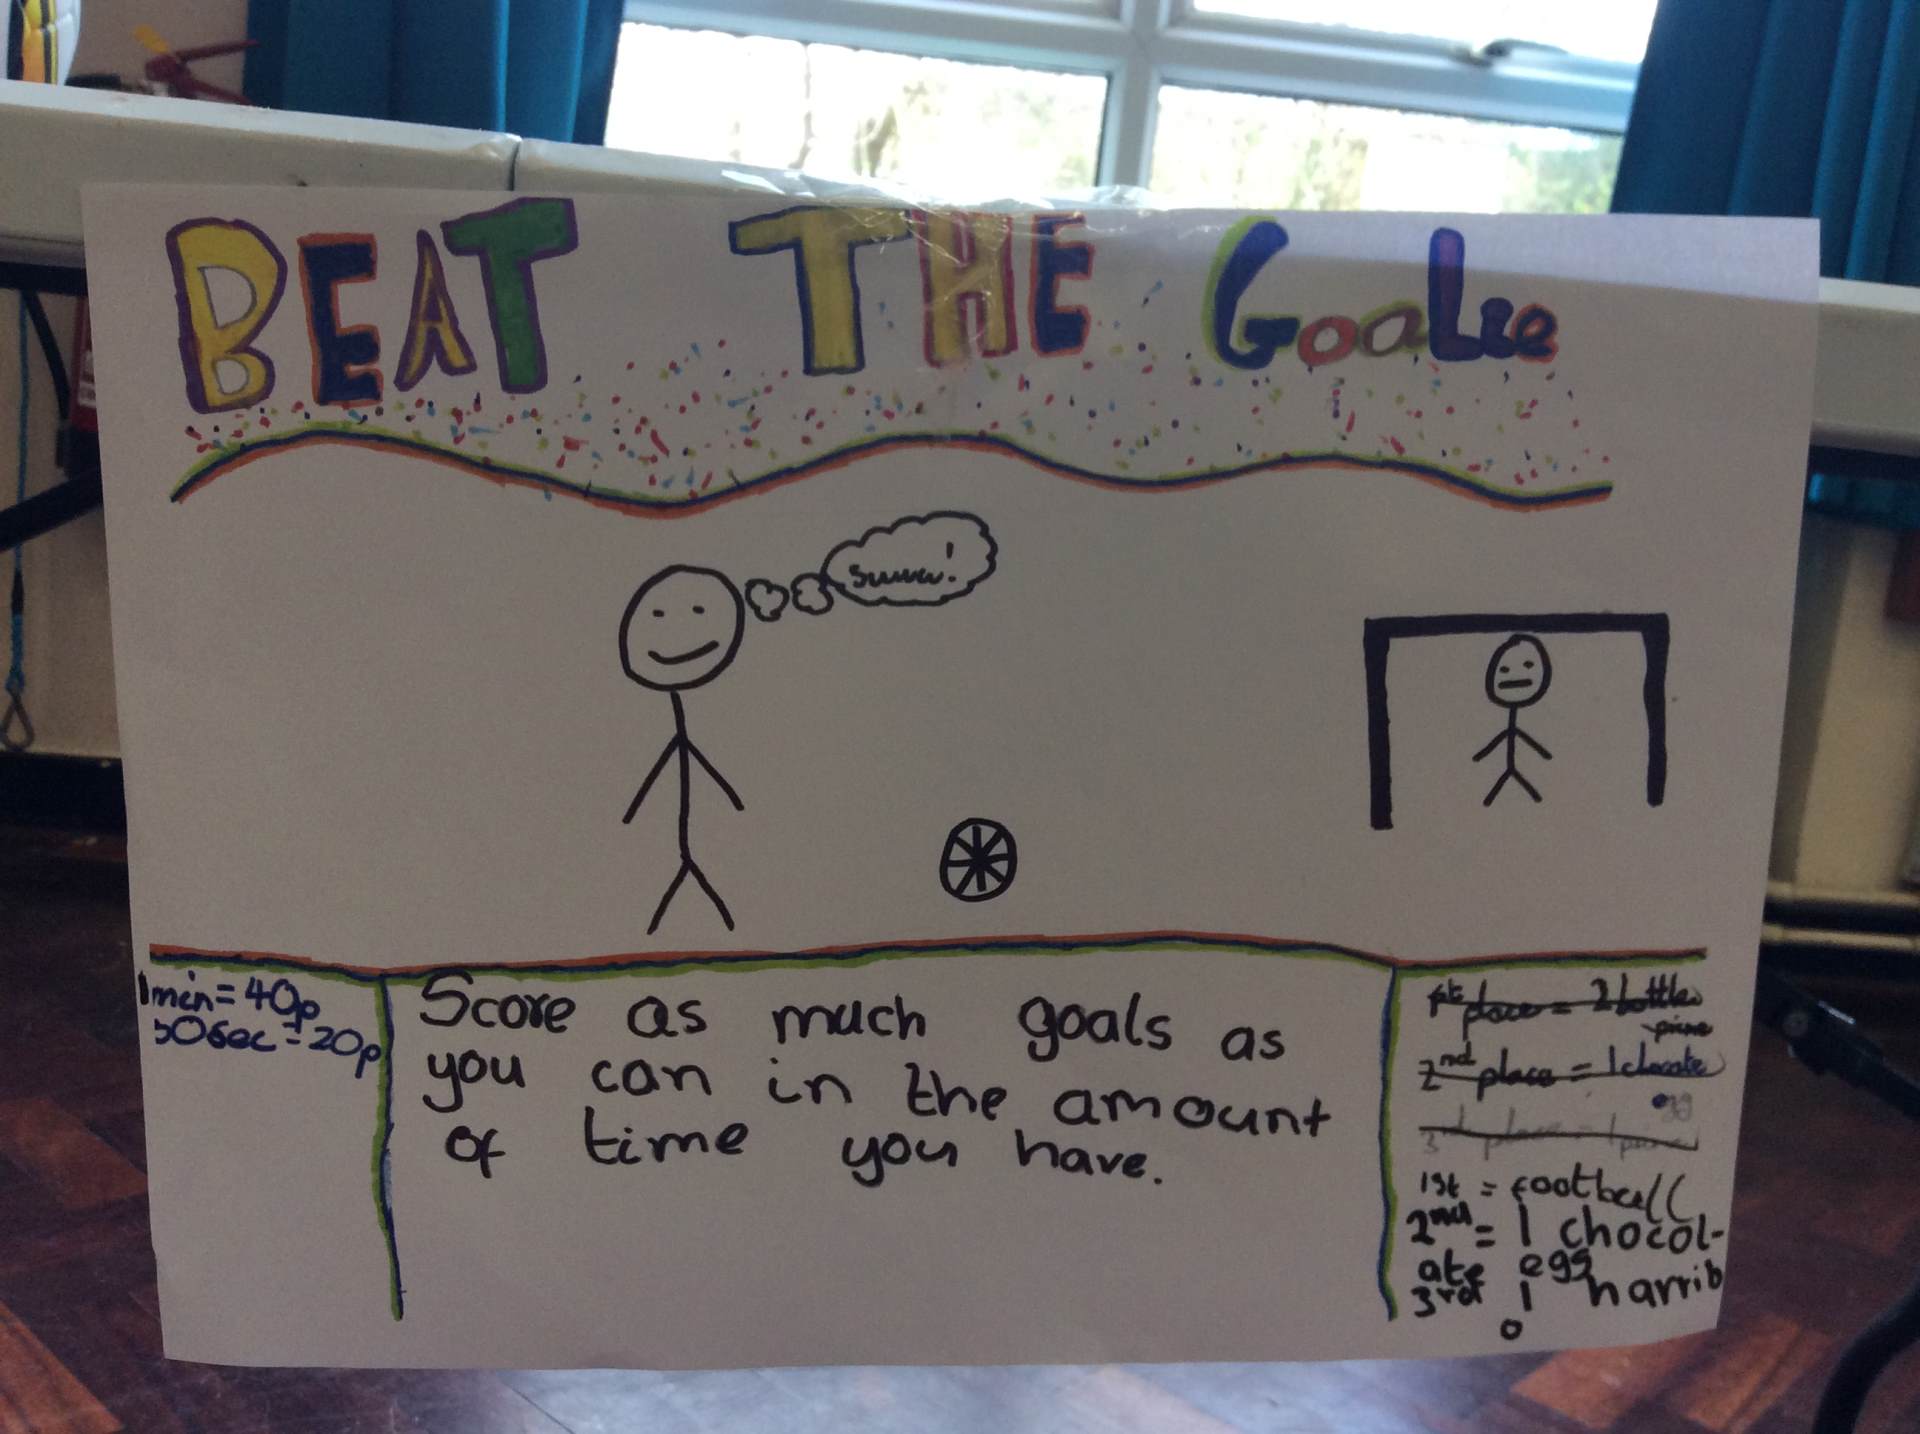 BEAT THE GoaLie
1min = 40p
30sec = 20p
Score as much goals as
you can in the amount
of time you have.
1st place = 2 bottles
2nd place = 1 chocate
egg
3rd place = 1
1st = football
2nd = 1 chocol-
ate egg
3rd 1 harrib
o